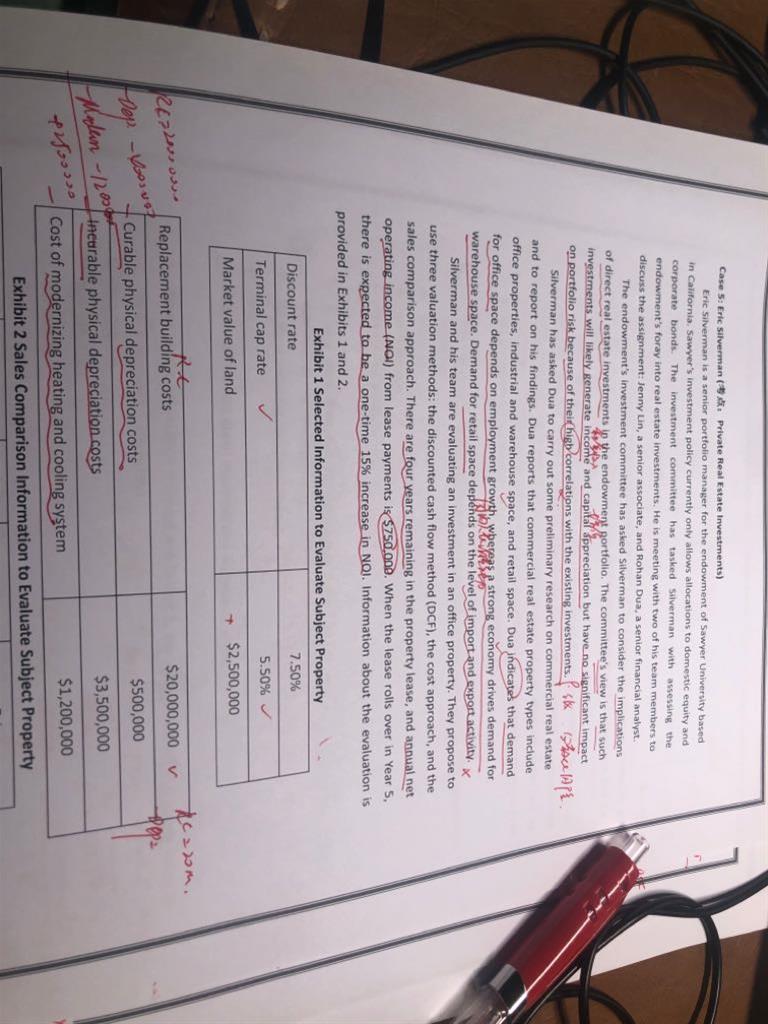 Case 5: Eric Silverman (考点: Private Real Estate Investments)
Eric Silverman is a senior portfolio manager for the endowment of Sawyer University based
in California. Sawyer's investment policy currently only allows allocations to domestic equity and
corporate bonds. The investment committee has tasked Silverman with assessing the
endowment's foray into real estate investments. He is meeting with two of his team members to
discuss the assignment: Jenny Lin, a senior associate, and Rohan Dua, a senior financial analyst.
The endowment's investment committee has asked Silverman to consider the implications
of direct real estate investments in the endowment portfolio. The committee's view is that such
investments will likely generate income and capital appreciation but have no significant impact
on portfolio risk because of their high correlations with the existing investments.
Silverman has asked Dua to carry out some preliminary research on commercial real estate
and to report on his findings. Dua reports that commercial real estate property types include
office properties, industrial and warehouse space, and retail space. Dua indicates that demand
for office space depends on employment growth, whereas a strong economy drives demand for
warehouse space. Demand for retail space depends on the level of import and export activity.
Silverman and his team are evaluating an investment in an office property. They propose to
use three valuation methods: the discounted cash flow method (DCF), the cost approach, and the
sales comparison approach. There are four years remaining in the property lease, and annual net
operating income (NOI) from lease payments is $750,000. When the lease rolls over in Year 5,
there is expected to be a one-time 15% increase in NOI. Information about the evaluation is
provided in Exhibits 1 and 2.
Exhibit 1 Selected Information to Evaluate Subject Property
Discount rate 7.50%
Terminal cap rate 5.50%
Market value of land $2,500,000
Replacement building costs $20,000,000
Curable physical depreciation costs $500,000
Incurable physical depreciation costs $3,500,000
Cost of modernizing heating and cooling system $1,200,000
Exhibit 2 Sales Comparison Information to Evaluate Subject Property